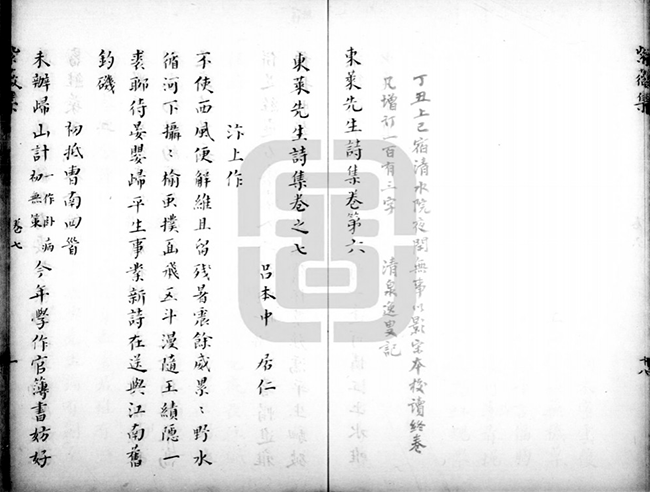 丁丑上巳宿清水院夜闌無事以影宋本校讀終卷
凡增訂一百有三字 清泉逸叟記
東萊先生詩集卷第六
東萊先生詩集卷之七
呂本中 居仁
汴上作
不使西風便解維且留殘暑震餘威累〻野水
循河下攝〻榆更撲面飛五斗漫隨王績隱一
裘聊待晏嬰歸平生事業新詩在送與江南舊
釣磯
初抵曹南四首
未辦歸山計一作卧病初無策今年學作官簿書妨好
卷七 一